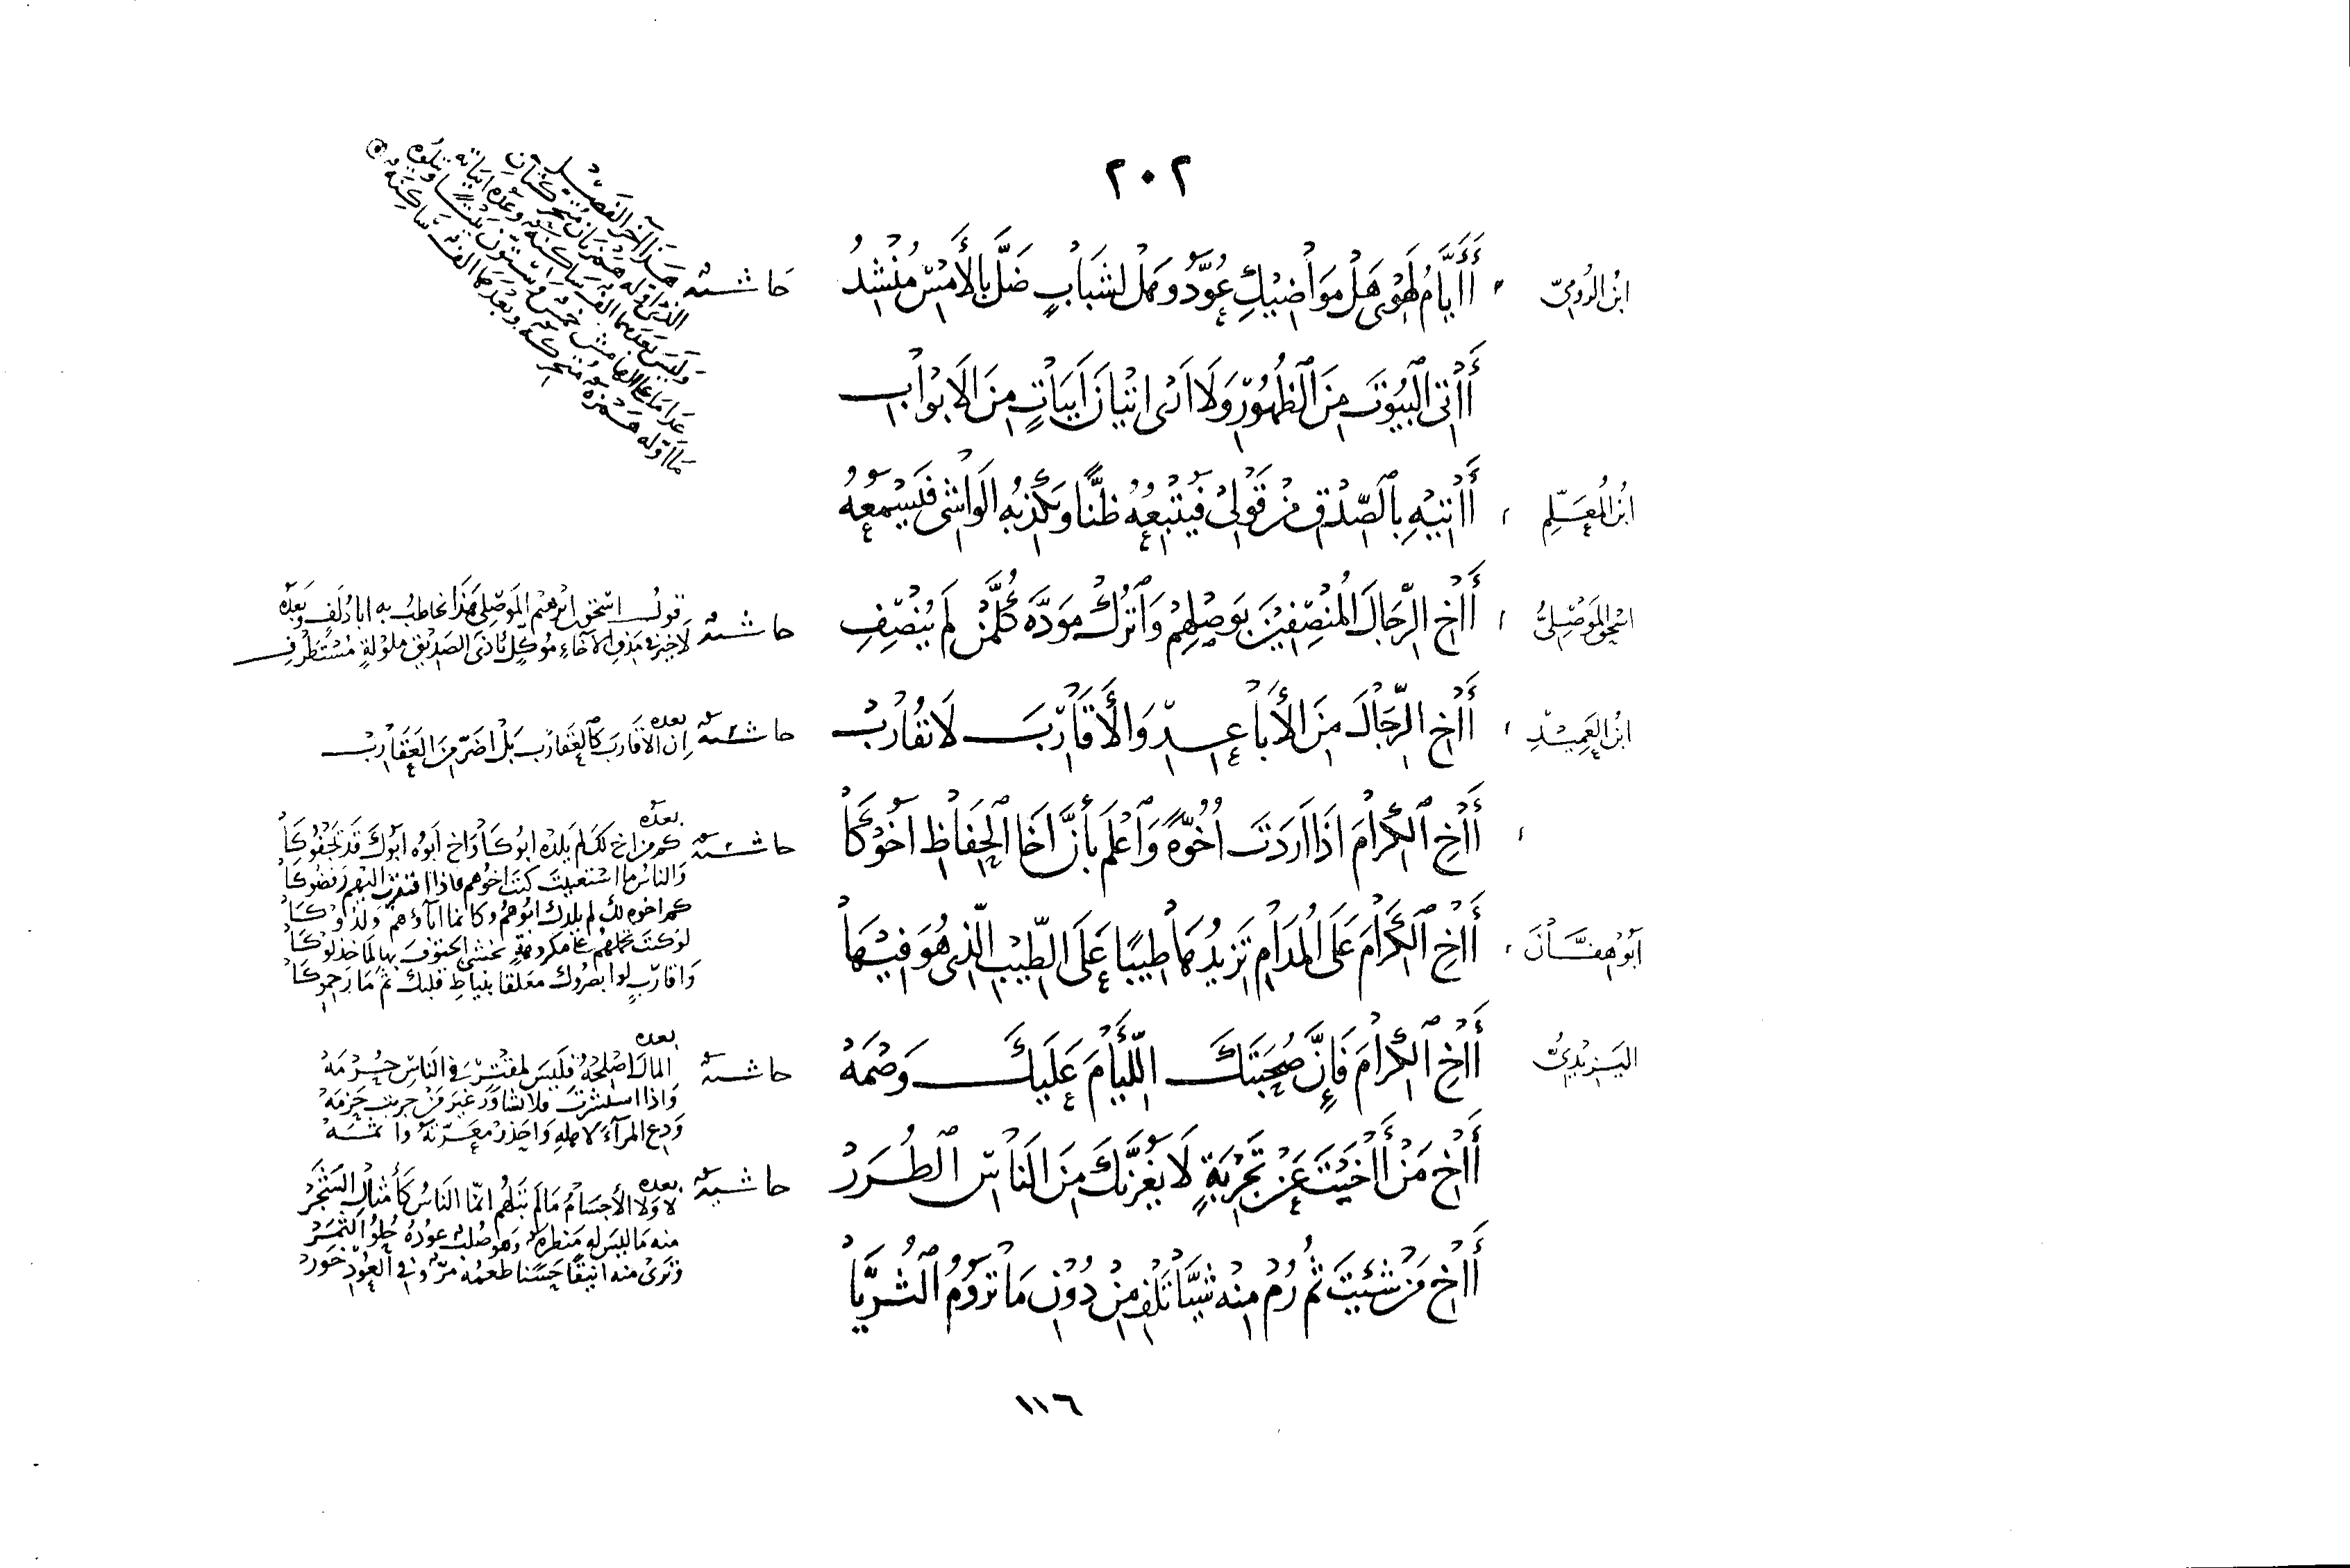 ٢٠٢
ابْنُ الرُّومِيّ
أَأَيَّامُ لَهْوِي هَلْ مَوَاضِيْكِ عُوَّدُ وَهَلْ لِشَبَابٍ ضَلَّ بِالأَمْسِ مُنْشِدُ
حَاشِيَةٌ
هَذَا آخِرُ الفَصْلِ
الَّذِي أَوَّلُهُ هَمْزَتَانِ مُتَحَرِّكَتَانِ
وَلَيْسَ بَعْدَهُمَا أَلِفٌ سَاكِنَةٌ وَعِدَّةُ أَبْيَاتِهِ
عَدَا مَا عَلَى الهَامِشِ خَمْسٌ وَسِتُّونَ بَيْتًا وَيَتْلُوهُ
مَا أَوَّلُهُ هَمْزَةٌ مُتَحَرِّكَةٌ وَبَعْدَهَا أَلِفٌ سَاكِنَةٌ
أَأْتِي البُيُوْتَ مِنَ الظُّهُوْرِ وَلَا أَرَى إِتْيَانَ أَبْيَاتٍ مِنَ الأَبْوَابِ
ابْنُ المُعَلِّمِ
أَأْتِيْهِ بِالصِّدْقِ مِنْ قَوْلِيْ فَيَتْبَعُهُ ظَنًّا وَيَكْذِبُهُ الوَاشِي فَيَسْمَعُهُ
اسْحقُ المَوْصِلِيُّ
أَأْخِ الرِّجَالَ المُنْصِفِيْنَ بِوَصْلِهِمْ وَاتْرُكْ مَوَدَّةَ كُلِّ مَنْ لَمْ يُنْصِفِ
حاشية
قول اسْحق بن ابرهيم المَوصِلي هَذَا يخاطبُ به ابا دُلَفٍ وبَعْدَهُ
لَا خيرَ في مَذِقِ الاخَاءِ مُوكّلٌ بأذَى الصَدِيقِ مَلُوْلَةٍ مُسْتَطْرِفِ
ابْنُ العَمِيْدِ
أَأْخِ الرِّجَالَ مِنَ الأَبَاعِدِ وَالأَقَارِبَ لَا تُقَارِبْ
حاشية
بعده
إن الاقَاربَ كَالعَقَارب بَلْ اضَرّ مِنَ العَقَارِبْ
أَأْخِ الكِرَامَ اذَا ارَدْتَ أُخُوَّةً وَاعْلَمْ بأنَّ أخَا الحِفَاظِ أَخُوْكَا
حاشية
بعده
كم من أخٍ لَكَ لم يَلدْهُ ابُوكَا وَاخٍ ابَوُه ابُوكَ قَدْ يَجْفُوكَا
وَالناسُ ما استغنيتَ كنتَ اخُوهم فاذا افتقرتَ اليْهِم رَفَضُوكَا
كم اخوه لك لم يلدك ابُوهُمُ وكانما اباؤهم وَلدُوكَا
لو كنتَ تحملُهم على مكروهةٍ تخشى الحتوفَ بها لمَا خذلوكَا
وَاقاربٍ لو ابصرُوك معلقا بنياطِ قلبك ثم مَا رَحِمُوكَا
ابُوْ هفَّانَ
أَأْخِ الكِرَامَ عَلَى المُدَامِ تَزِيدُهَا طِيْبًا عَلَى الطِّيْبِ الَّذِي هُوَ فِيْهَا
اليَزِيْدِيُّ
أَأْخِ الكِرَامَ فَإِنَّ صُحْبَتَكَ اللِّئَامَ عَلَيْكَ وَصْمَهْ
حاشية
بعده
المالَ اصْلحْهُ فَلَيسَ لمُقترٍ في النَاسِ حُرْمَهْ
وَاذا اسْتشرْتَ فلا تشاوِرْ غيرَ مَنْ جرّبتَ حَزمَهْ
وَدعِ المِرَآءَ لاهلِهِ وَاحذرْ مَعَرّتهُ وإثمَهْ
أَأْخِ مَنْ أَأْخَيْتَ عَنْ تَجْرِبَةٍ لَا يَغُرَّنْكَ مِنَ النَّاسِ الطُرَرْ
حاشية
بعده
لا وَلا الأجسَامُ مَا لَمْ تَبْلُهم انّمَا النَاسُ كأَمْثالِ الشَجَرْ
منه مَا ليسَ لهِ مَنظرةٌ وَهو صُلبٌ عُودُهُ حُلوُ الثمَرْ
وَترى منه انيقًا حَسَنا طعمُهُ مُرٌّ وفي العُوْدِ خَوَرْ
أَأْخِ مَنْ شِئْتَ ثُمَّ رُمْ مِنْهُ شَيْئًا تَلْقَ مِنْ دُوْنِ مَا تَرُوْمُ الثُّرَيَّا
١١٦